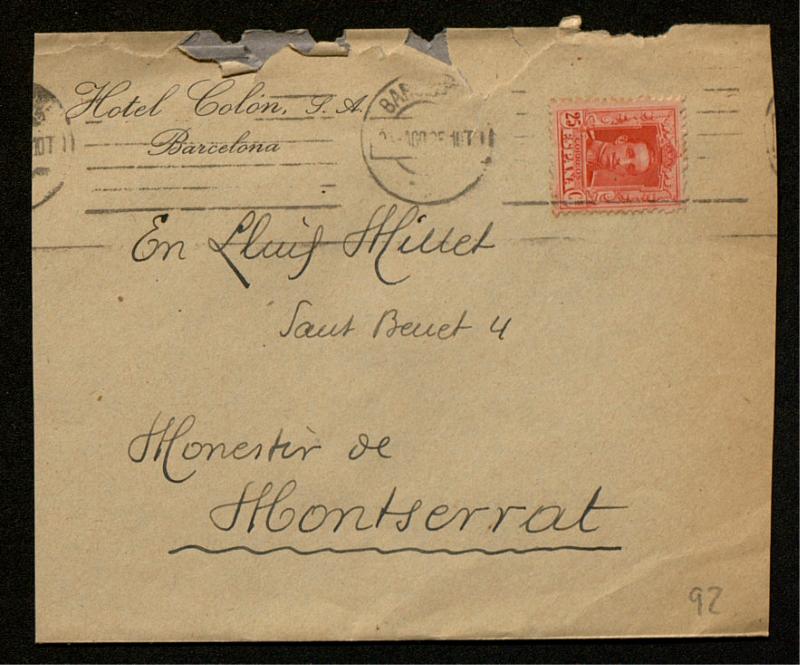 Hotel Colón, S. A.
Barcelona
25 Cs
CORREOS
ESPAÑA
En Lluis Millet
Sant Benet 4
Monestir de
Montserrat
92